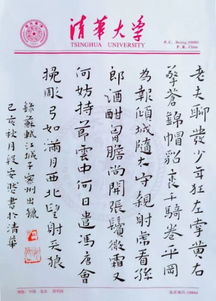 清華大學
TSINGHUA UNIVERSITY
P. R. China
老夫聊發少年狂左牽黃右
擎蒼錦帽貂裘千騎卷平岡
為報傾城隨太守親射虎看孫
郎酒酣胸膽尚開張鬢微霜又
何妨持節雲中何日遣馮唐會
挽雕弓如滿月西北望射天狼
錄蘇軾江城子密州出獵
己亥秋月段安書於清華